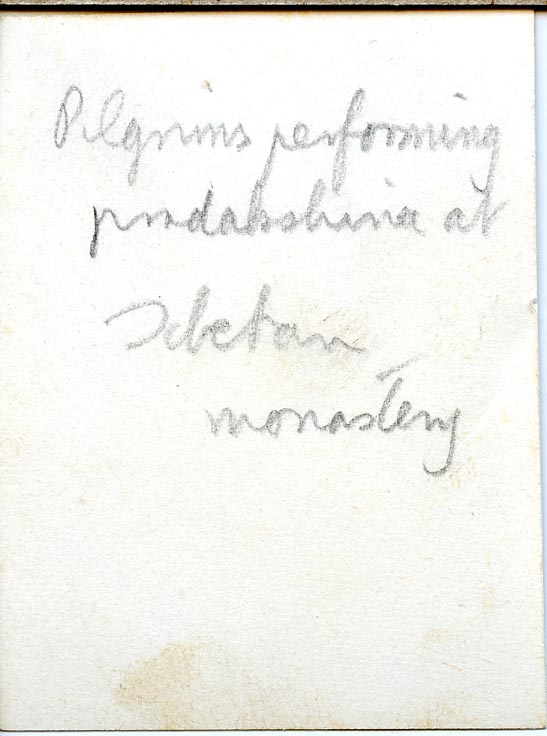 Pilgrims performing
pradakshina at
Tibetan
monastery